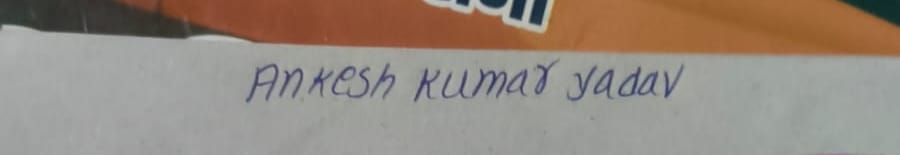 Ankesh Kumar yadav